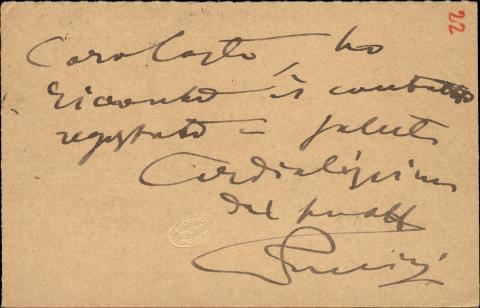 22
Caro Carlo, ho
ricevuto il contratto
registrato = Saluti
Cordialissimi
dal tuo aff
Puccini